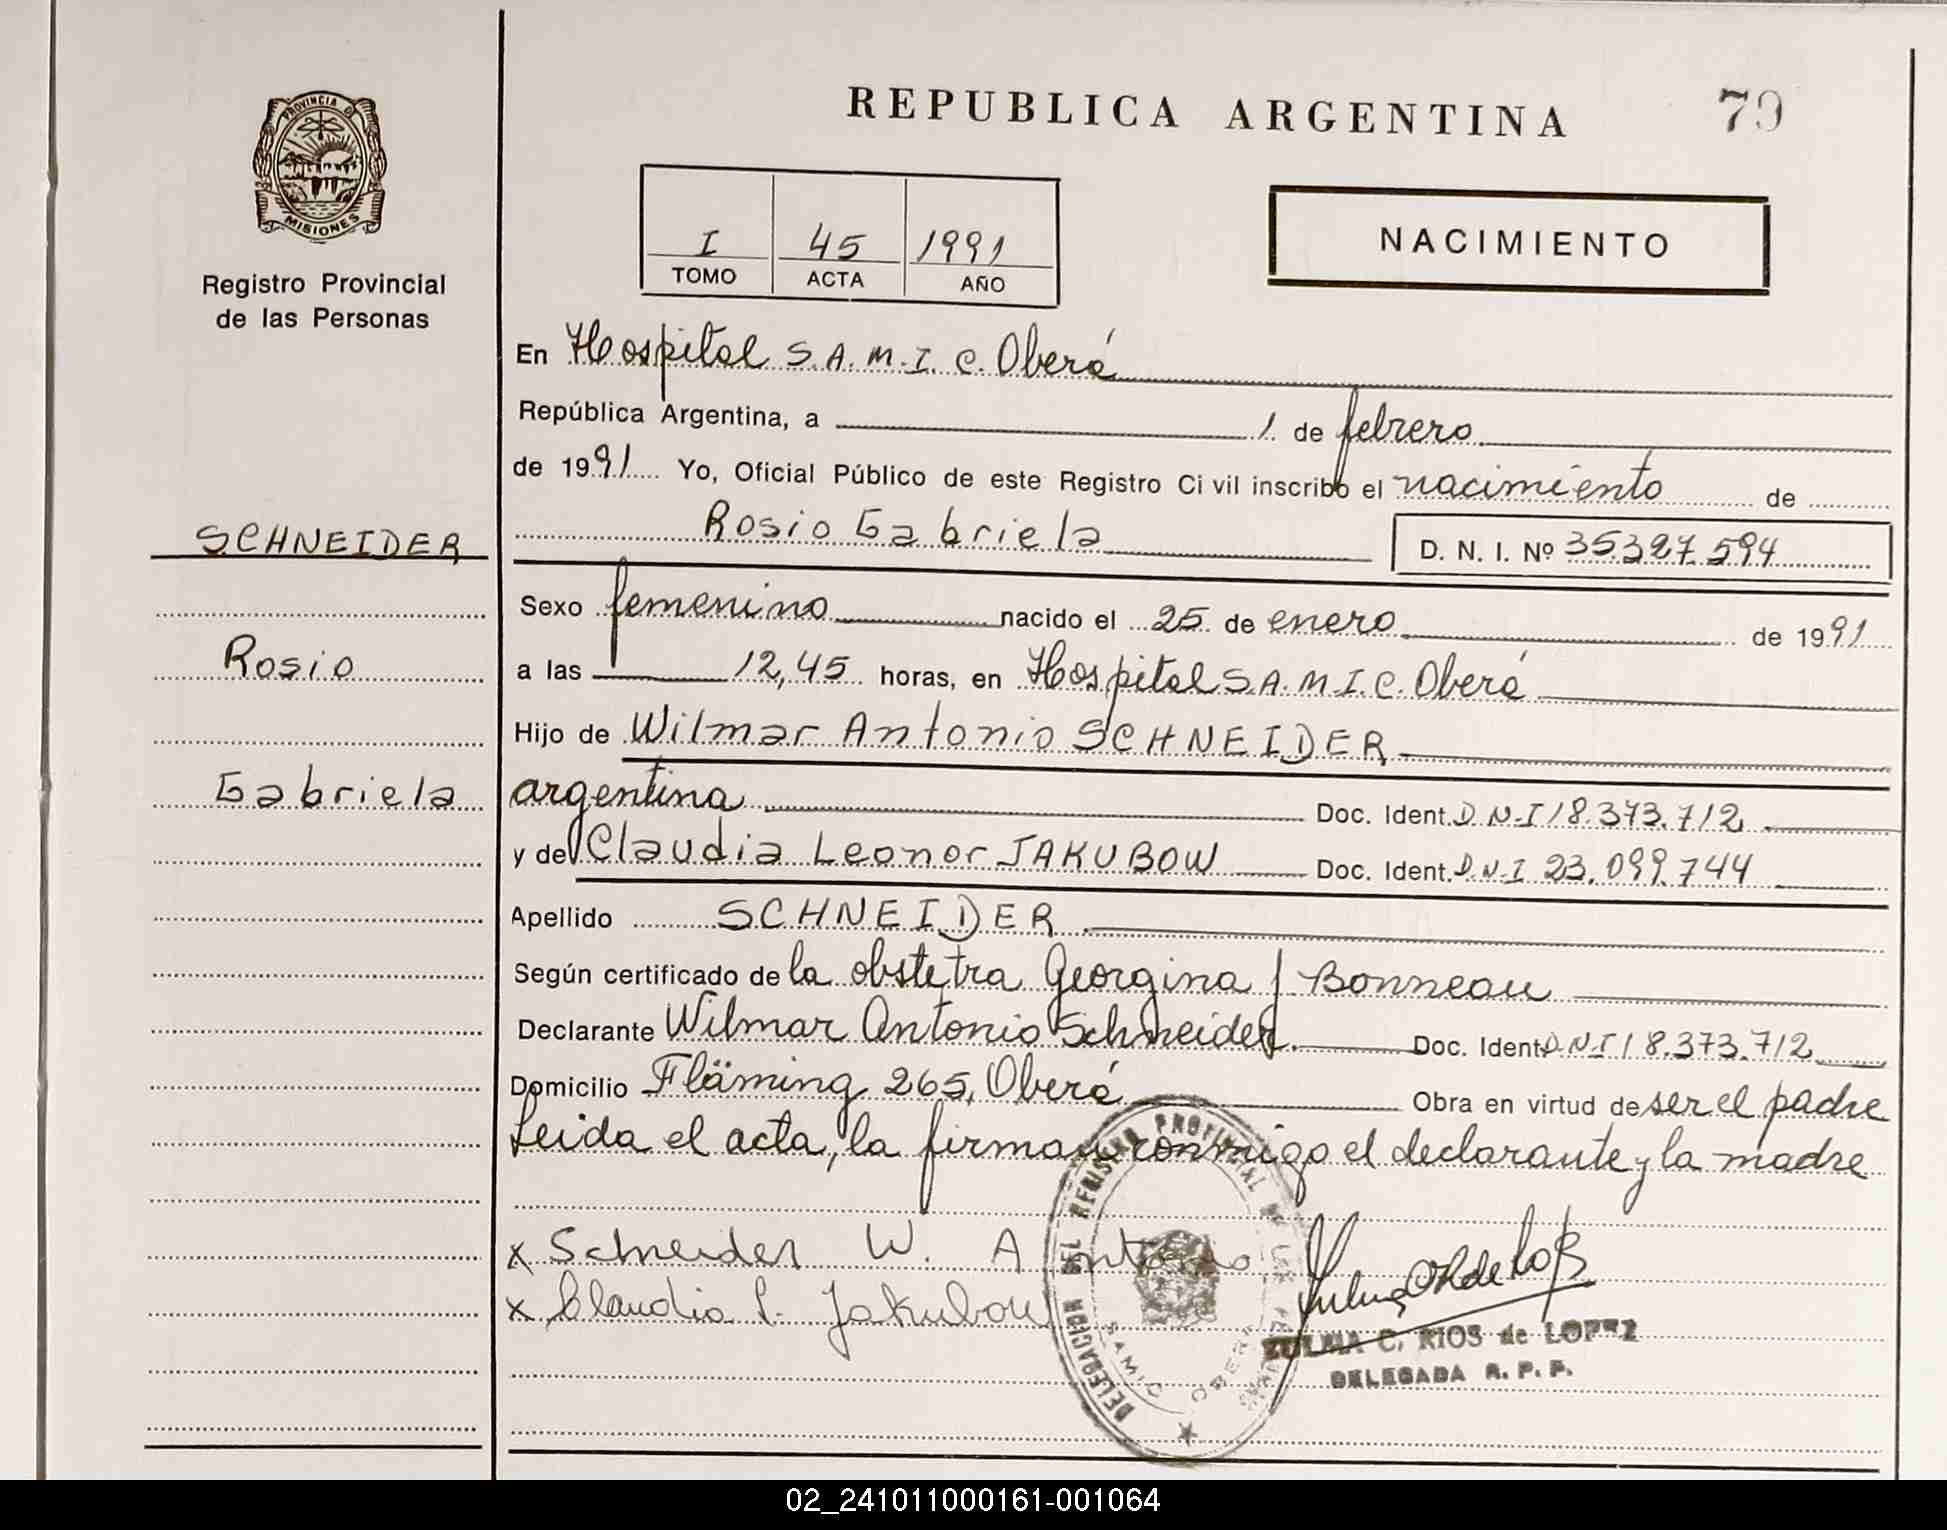 REPUBLICA ARGENTINA
79
PROVINCIA DE
MISIONES
Registro Provincial
de las Personas
I 45 1991
TOMO ACTA AÑO
NACIMIENTO
En Hospital S.A.M.I.C. Oberá
República Argentina, a 1 de febrero
de 1991 Yo, Oficial Público de este Registro Civil inscribo el nacimiento de
SCHNEIDER
Rosio Gabriela
D. N. I. Nº 35.327.594
Sexo femenino nacido el 25 de enero de 1991
Rosio
a las 12,45 horas, en Hospital S.A.M.I.C. Oberá
Hijo de Wilmar Antonio SCHNEIDER
Gabriela
argentina Doc. Ident. D.N.I 18.373.712
y de Claudia Leonor JAKUBOW Doc. Ident. D.N.I 23.099.744
Apellido SCHNEIDER
Según certificado de la obstetra Georgina J Bonneau
Declarante Wilmar Antonio Schneider. Doc. Ident. D.N.I 18.373.712
Domicilio Fläming 265, Oberá Obra en virtud de ser el padre
Leida el acta, la firman conmigo el declarante y la madre
x Schneider W. Antonio
x Claudia L. Jakubow
DELEGACION DEL REGISTRO PROVINCIAL DE LAS PERSONAS
SAMIC OBERA
ZULMA C. RIOS de LOPEZ
DELEGADA R. P. P.
02_241011000161-001064